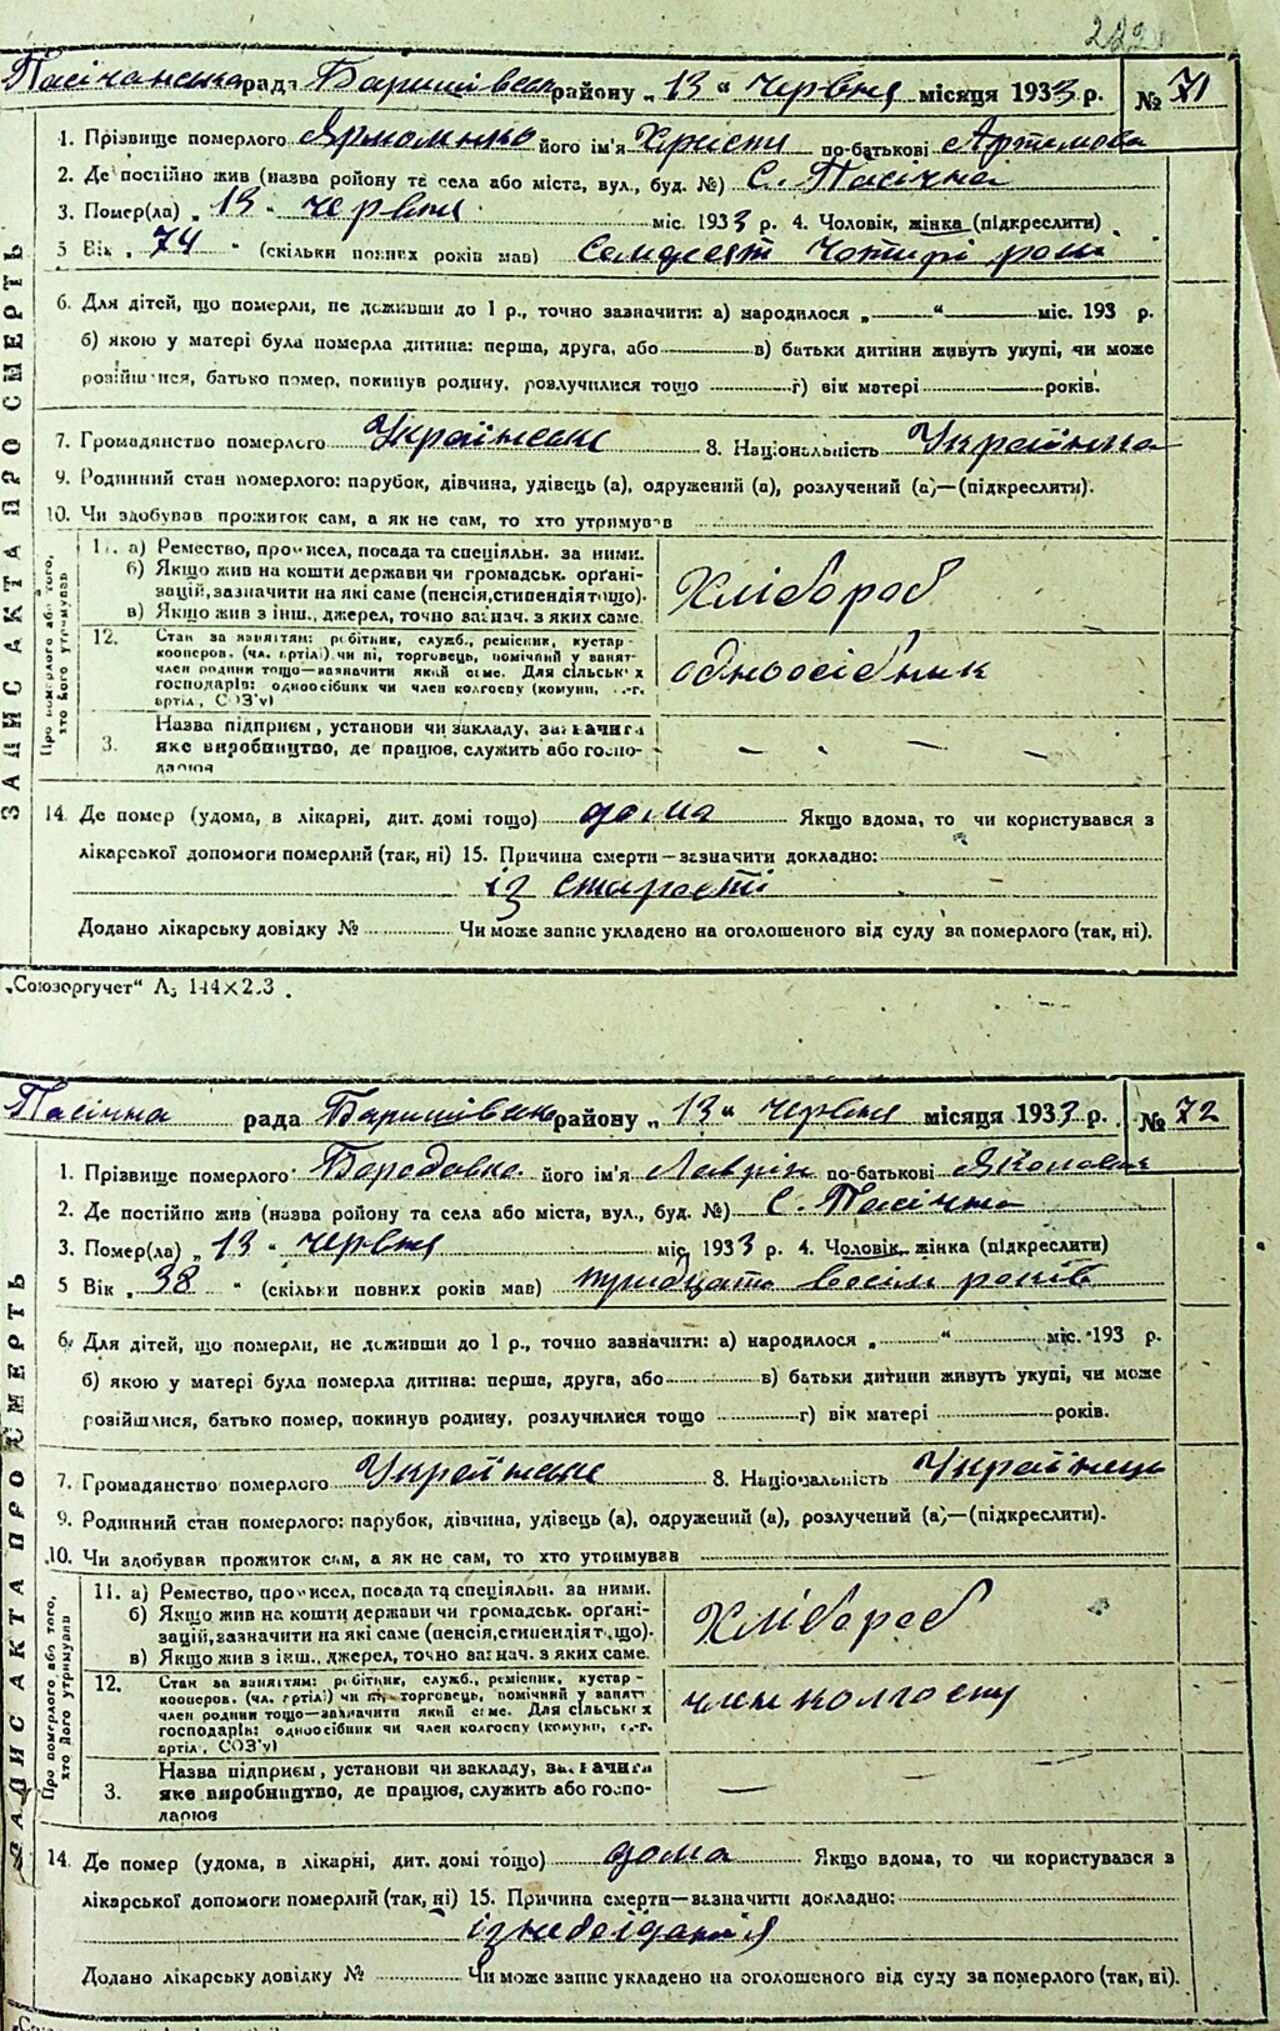 222
Пасічанська рада Баришівськ району „13“ червня місяця 1933 р. № 71
1. Прізвище померлого Ярмоленко його ім'я Христи по-батькові Артемова
2. Де постійно жив (назва ройону та села або міста, вул., буд. №) С. Пасічна
3. Помер(ла) „13“ червня міс. 1933 р. 4. Чоловік, жінка (підкреслити)
5 Вік „74“ (скільки повних років мав) Семдесят чотирі роки
6. Для дітей, що померли, не доживши до 1 р., точно зазначити: а) народилося „ “ міс. 193 р.
б) якою у матері була померла дитина: перша, друга, або в) батьки дитини живуть укупі, чи може
розійшлися, батько помер, покинув родину, розлучилися тощо г) вік матері років.
7. Громадянство померлого Українське 8. Національність Українка
9. Родинний стан померлого: парубок, дівчина, удівець (а), одружений (а), розлучений (а)—(підкреслити).
10. Чи здобував прожиток сам, а як не сам, то хто утримував
ЗАПИС АКТА ПРО СМЕРТЬ
Про померлого або того, хто його утримував
11. а) Ремество, промисел, посада та спеціяльн. за ними.
б) Якщо жив на кошти держави чи громадськ. органі-
зацій, зазначити на які саме (пенсія, стипендія тощо).
в) Якщо жив з інш., джерел, точно зазнач. з яких саме.
Хлібороб
12. Стан за заняттям: робітник, служб., ремісник, кустар -
кооперов. (чл. артілі) чи ні, торговець, помічний у занят-
член родини тощо—зазначити який саме. Для сільськ х
господарів: одноосібник чи член колгоспу (комуни, с.-г.
артіл, СОЗ'у)
одноосібник
3. Назва підприєм, установи чи закладу, зазначити
яке виробництво, де працює, служить або госпо-
дарює
14. Де помер (удома, в лікарні, дит. домі тощо) дома Якщо вдома, то чи користувався з
лікарської допомоги померлий (так, ні) 15. Причина смерти—зазначити докладно:
із старості
Додано лікарську довідку № Чи може запис укладено на оголошеного від суду за померлого (так, ні).
„Союзоргучет“
Пасічна рада Баришівськ району „13“ червня місяця 1933 р. № 72
1. Прізвище померлого Бородавка його ім'я Лаврін по-батькові Яколович
2. Де постійно жив (назва ройону та села або міста, вул., буд. №) С. Пасічна
3. Помер(ла) „13“ червня міс 1933 р. 4. Чоловік, жінка (підкреслити)
5 Вік „38“ (скільки повних років мав) тридцять восім років
6. Для дітей, що померли, не доживши до 1 р., точно зазначити: а) народилося „ “ міс. 193 р.
б) якою у матері була померла дитина: перша, друга, або в) батьки дитини живуть укупі, чи може
розійшлися, батько помер, покинув родину, розлучилися тощо г) вік матері років.
7. Громадянство померлого Українське 8. Національність Українець
9. Родинний стан померлого: парубок, дівчина, удівець (а), одружений (а), розлучений (а)—(підкреслити).
10. Чи здобував прожиток сам, а як не сам, то хто утримував
ЗАПИС АКТА ПРО СМЕРТЬ
Про померлого або того, хто його утримував
11. а) Ремество, промисел, посада та спеціяльн. за ними.
б) Якщо жив на кошти держави чи громадськ. органі-
зацій, зазначити на які саме (пенсія, стипендія тощо).
в) Якщо жив з інш., джерел, точно зазнач. з яких саме.
Хлібороб
12. Стан за заняттям: робітник, служб., ремісник, кустар -
кооперов. (чл. артілі) чи ні, торговець, помічний у занятт
член родини тощо—зазначити який саме. Для сільськ х
господарів: одноосібник чи член колгоспу (комуни, с.-г.
артіл, СОЗ'у)
член колгоспу
3. Назва підприєм, установи чи закладу, зазначити
яке виробництво, де працює, служить або госпо-
дарює
14. Де помер (удома, в лікарні, дит. домі тощо) дома Якщо вдома, то чи користувався з
лікарської допомоги померлий (так, ні) 15. Причина смерти—зазначити докладно:
ізнебоїданія
Додано лікарську довідку № Чи може запис укладено на оголошеного від суду за померлого (так, ні).